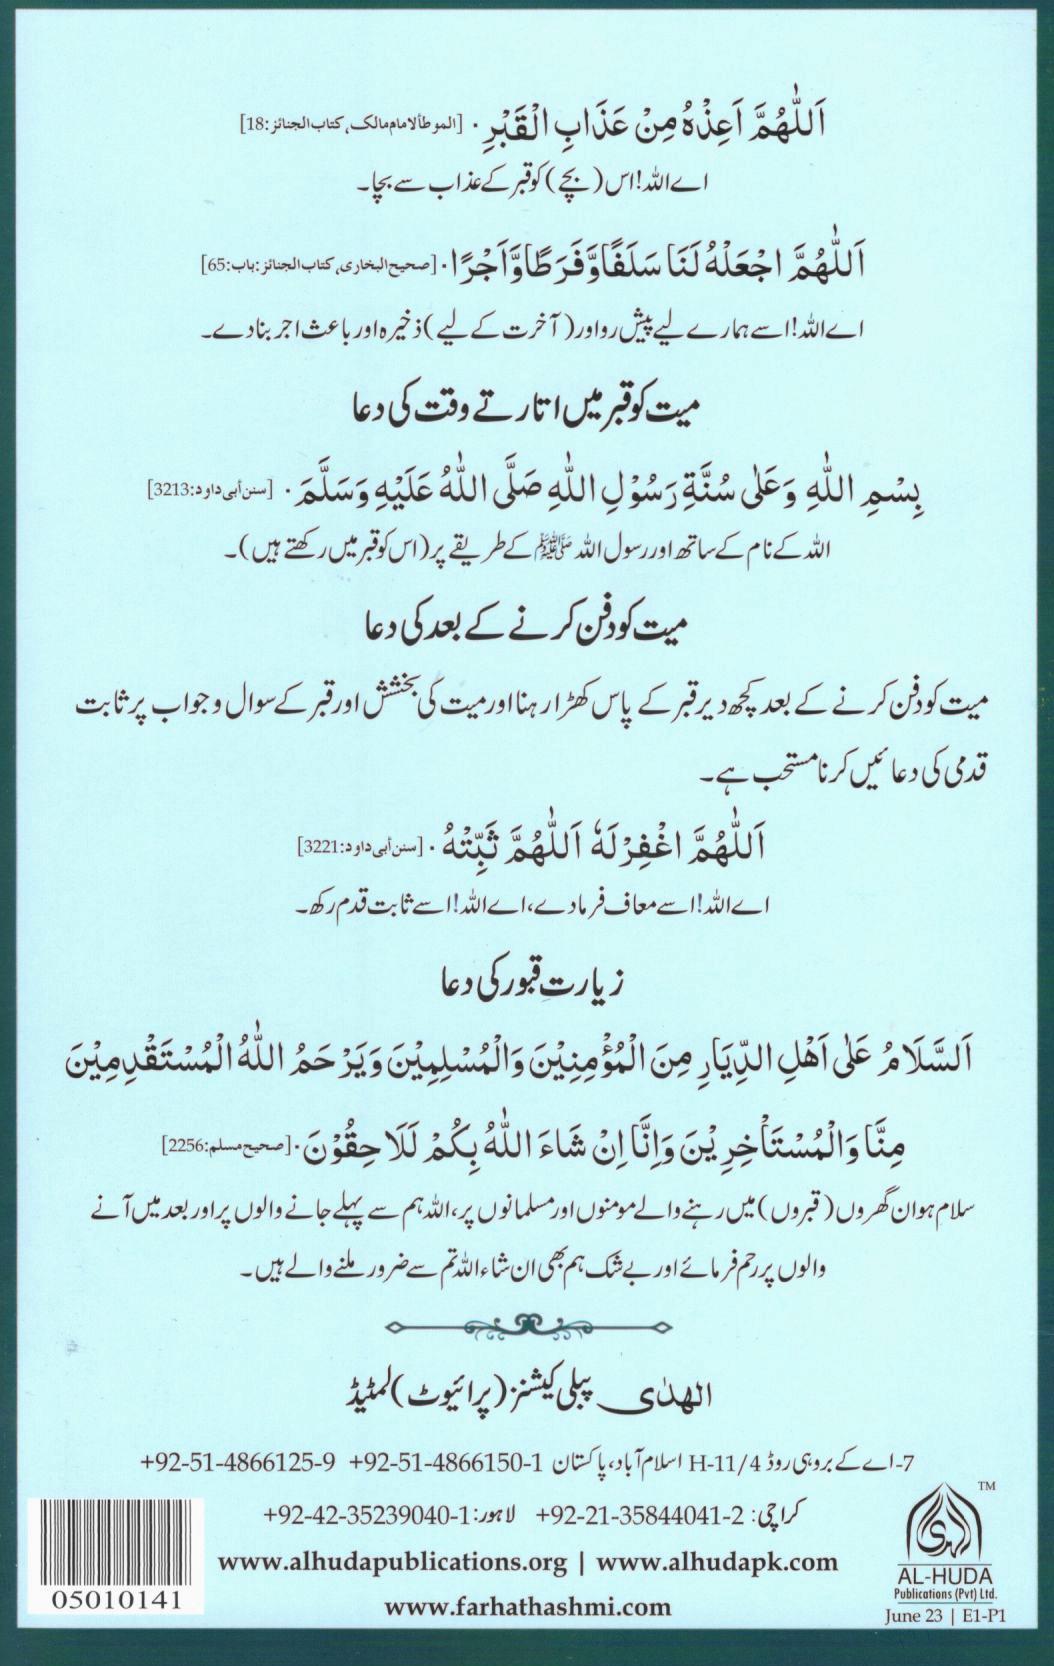 اَللّٰهُمَّ اَعِذْهُ مِنْ عَذَابِ الْقَبْرِ ۰ [الموطأ لامام مالک، کتاب الجنائز:18]
اے اللہ! اس (بچے) کو قبر کے عذاب سے بچا۔
اَللّٰهُمَّ اجْعَلْهُ لَنَا سَلَفًا وَّفَرَطًا وَّاَجْرًا ۰ [صحیح البخاری، کتاب الجنائز: باب:65]
اے اللہ! اسے ہمارے لیے پیش رو اور (آخرت کے لیے) ذخیرہ اور باعث اجر بنا دے۔
میت کو قبر میں اتارتے وقت کی دعا
بِسْمِ اللّٰهِ وَعَلٰى سُنَّةِ رَسُوْلِ اللّٰهِ صَلَّى اللّٰهُ عَلَيْهِ وَسَلَّمَ ۰ [سنن أبی داود:3213]
اللہ کے نام کے ساتھ اور رسول اللہ ﷺ کے طریقے پر (اس کو قبر میں رکھتے ہیں)۔
میت کو دفن کرنے کے بعد کی دعا
میت کو دفن کرنے کے بعد کچھ دیر قبر کے پاس کھڑا رہنا اور میت کی بخشش اور قبر کے سوال و جواب پر ثابت
قدمی کی دعائیں کرنا مستحب ہے۔
اَللّٰهُمَّ اغْفِرْ لَهٗ اَللّٰهُمَّ ثَبِّتْهُ ۰ [سنن أبی داود:3221]
اے اللہ! اسے معاف فرما دے، اے اللہ! اسے ثابت قدم رکھ۔
زیارتِ قبور کی دعا
اَلسَّلَامُ عَلٰى اَهْلِ الدِّيَارِ مِنَ الْمُؤْمِنِيْنَ وَالْمُسْلِمِيْنَ وَيَرْحَمُ اللّٰهُ الْمُسْتَقْدِمِيْنَ
مِنَّا وَالْمُسْتَأْخِرِيْنَ وَاِنَّا اِنْ شَاءَ اللّٰهُ بِكُمْ لَلَاحِقُوْنَ ۰ [صحیح مسلم:2256]
سلام ہو ان گھروں (قبروں) میں رہنے والے مومنوں اور مسلمانوں پر، اللہ ہم سے پہلے جانے والوں پر اور بعد میں آنے
والوں پر رحم فرمائے اور بے شک ہم بھی ان شاء اللہ تم سے ضرور ملنے والے ہیں۔
الھدٰی پبلی کیشنز (پرائیوٹ) لمٹیڈ
7-اے کے بروہی روڈ H-11/4 اسلام آباد، پاکستان +92-51-4866150-1 +92-51-4866125-9
کراچی: +92-21-35844041-2 لاہور: +92-42-35239040-1
www.alhudapublications.org | www.alhudapk.com
www.farhathashmi.com
05010141
TM
الہدی
AL-HUDA
Publications (Pvt) Ltd.
June 23 | E1-P1